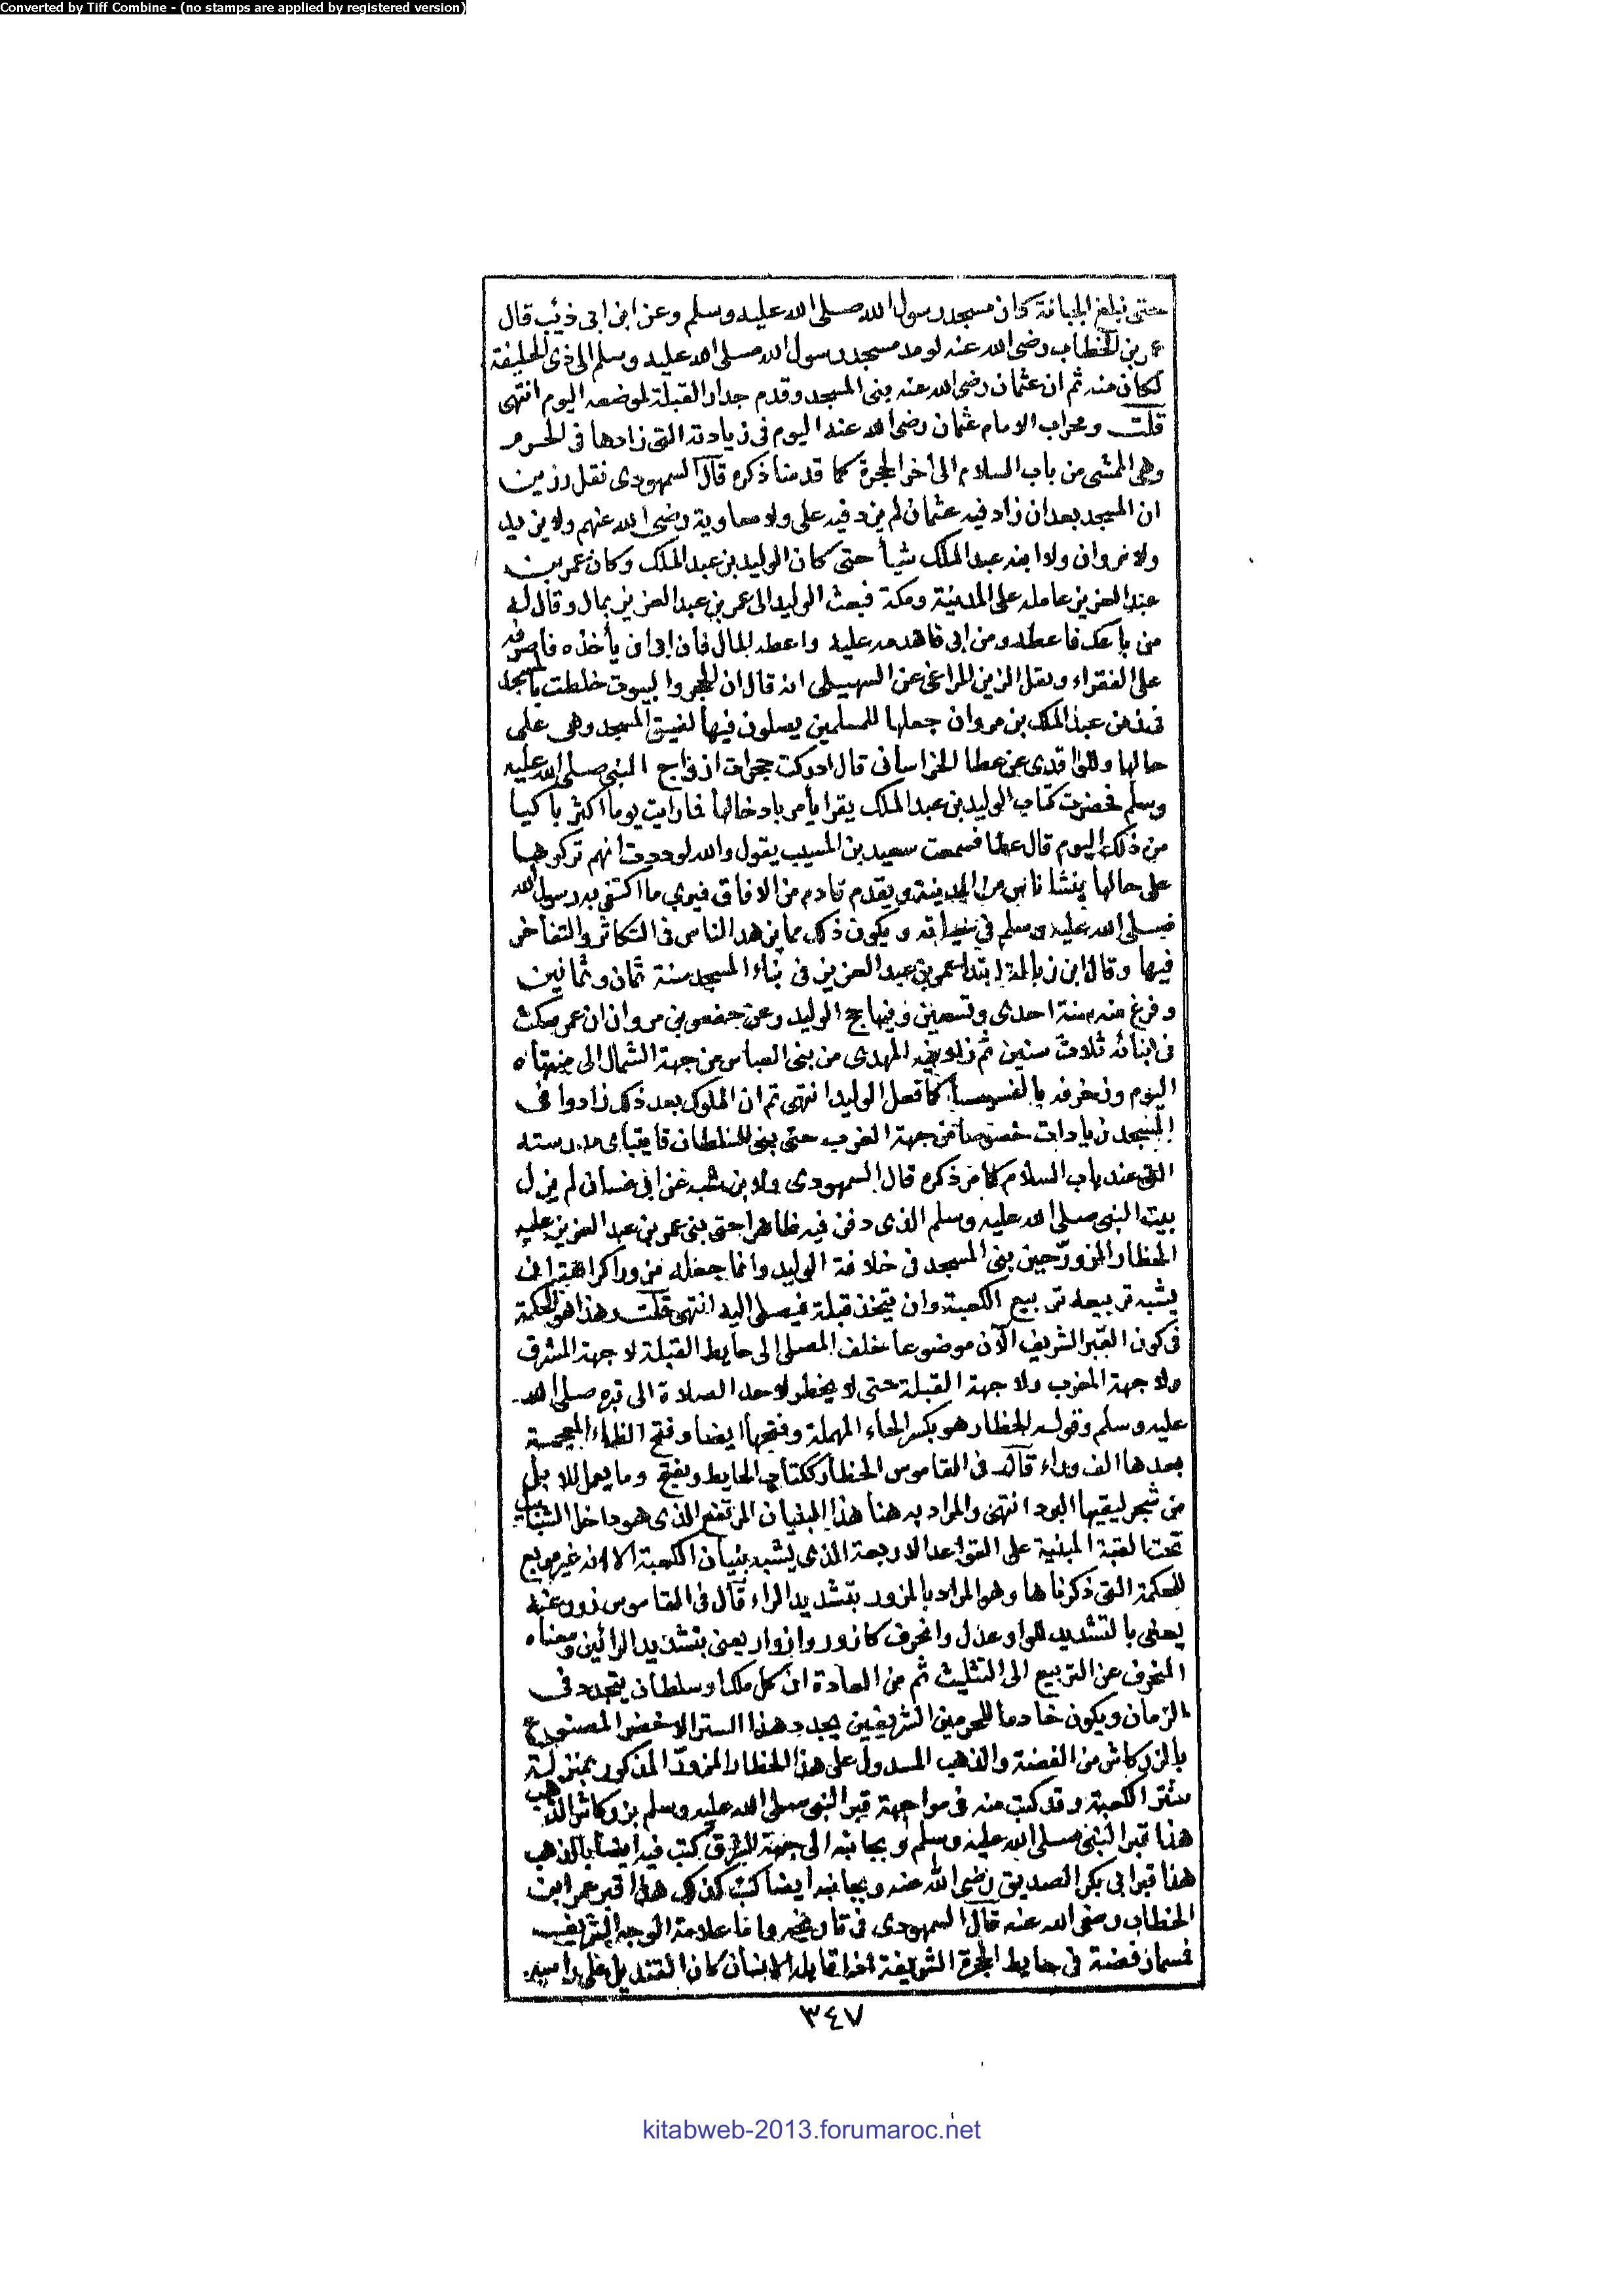 Converted by Tiff Combine - (no stamps are applied by registered version)
حتى نبلغ الجبانة كان مسجد رسول الله صلى الله عليه وسلم وعن ابن ابى ذئب قال
عمر بن الخطاب رضى الله عنه لو مد مسجد رسول الله صلى الله عليه وسلم الى ذى الحليفة
لكان منه ثم ان عثمان رضى الله عنه بنى المسجد وقدم جدار القبلة لموضعه اليوم انتهى
قلت ومحراب الامام عثمان رضى الله عنه اليوم فى زيادته التى زادها فى الحرم
وهى الممشى من باب السلام الى آخر الحجرة كما قدمنا ذكره قال السمهودى نقل رزين
ان المسجد بعد ان زاد فيه عثمان لم يزد فيه على ولا معاوية رضى الله عنهم ولا يزيد
ولا مروان ولا ابنه عبد الملك شيأ حتى كان الوليد بن عبد الملك وكان عمر بن
عبد العزيز عامله على المدينة ومكة فبعث الوليد الى عمر بن عبد العزيز بمال وقال له
من باعك فاعطه ومن ابى فاهدمه عليه واعطه المال فان ابى ان يأخذه فاصرفه
على الفقراء ونقل الزين المراغى عن السهيلى انه قال ان الحجر والبيوت خلطت بالمسجد
فى زمن عبد الملك بن مروان جعلها للمسلمين يصلون فيها لضيق المسجد وهى على
حالها وللواقدى عن عطا الخراسانى قال ادركت حجرات ازواج النبى صلى الله عليه
وسلم فحضرت كتاب الوليد بن عبد الملك يقرا يأمر بادخالها فما رايت يوما اكثر باكيا
من ذلك اليوم قال عطا فسمعت سعيد بن المسيب يقول والله لوددت انهم تركوها
على حالها ينشا ناس من المدينة ويقدم قادم من الافاق فيرى ما اكتفى به رسول الله
صلى الله عليه وسلم فى حياته ويكون ذلك مما يزهد الناس فى التكاثر والتفاخر
فيها وقال ابن زبالة ابتدا عمر بن عبد العزيز فى بناء المسجد سنة ثمان وثمانين
وفرغ منه سنة احدى وتسعين وفيها حج الوليد وعن جعفر بن مروان ان عمر مكث
فى ابنائه ثلاث سنين ثم زاد فيه المهدى من بنى العباس من جهة الشمال الى منتهاه
اليوم وزخرفه بالفسيفسا كما فعل الوليد انتهى ثم ان الملوك بعد ذلك زادوا فى
المسجد زيادات خصوصا من جهة الغرب حتى بنى السلطان قايتباى مدرسته
التى عند باب السلام كما مر ذكره قال السمهودى ولابن شبه عن ابى غسان لم يزل
بيت النبى صلى الله عليه وسلم الذى دفن فيه ظاهرا حتى بنى عمر بن عبد العزيز عليه
الحظار المزور حين بنى المسجد فى خلافة الوليد وانما جعله مزورا كراهة ان
يشبه تربيعه تربيع الكعبة وان يتخذ قبلة فيصلى اليه انتهى قلت وهذا هو الحكمة
فى كون القبر الشريف الآن موضوعا خلف المصلى الى حايط القبلة لا جهة المشرق
ولا جهة المغرب ولا جهة القبلة حتى لا يخطر لاحد الصلاة الى قبره صلى الله
عليه وسلم وقوله الحظار هو بكسر الحاء المهملة وفتحها ايضا وفتح الظاء المعجمة
بعدها الف وراء قال فى القاموس الحظار ككتاب الحايط ويفتح وما يعمل للابل
من شجر ليقيها البرد انتهى والمراد به هنا هذا البنيان المرتفع الذى هو داخل الشبابيك
تحت القبة المبنية على القواعد الاربعة الذى يشبه بنيان الكعبة الا انه غير مربع
للحكمة التى ذكرناها وهو المراد بالمزور بتشديد الراء قال فى القاموس زور عنه
يعنى بالتشديد للواو عدل وانحرف كازور وازوار يعنى بتشديد الرائين ومعناه
المنحرف عن التربيع الى التثليث ثم من العادة ان كل ملك او سلطان يتجدد فى
الزمان ويكون خادما للحرمين الشريفين يجدد هذا الستر الاخضر المصنوع
بالزركاش من الفضة والذهب المسدول على هذا الحظار المزور المذكور بمنزلة
ستر الكعبة وقد كتب منه فى مواجهة قبر النبى صلى الله عليه وسلم بزركاش الذهب
هذا قبر النبى صلى الله عليه وسلم وبجانبه الى جهة الشرق كتب فيه ايضا بالذهب
هذا قبر ابى بكر الصديق رضى الله عنه وبجانبه ايضا كتب كذلك هذا قبر عمر ابن
الخطاب رضى الله عنه قال السمهودى فى تاريخه واما علامة الوجه الشريف
فمسمار فضة فى حايط الحجرة الشريفة اذا قابله الانسان كان القنديل على راسه
٣٤٧
kitabweb-2013.forumaroc.net